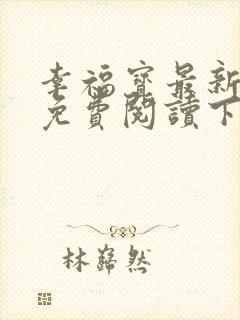 幸福寶最新
免費閱讀下
林巋然